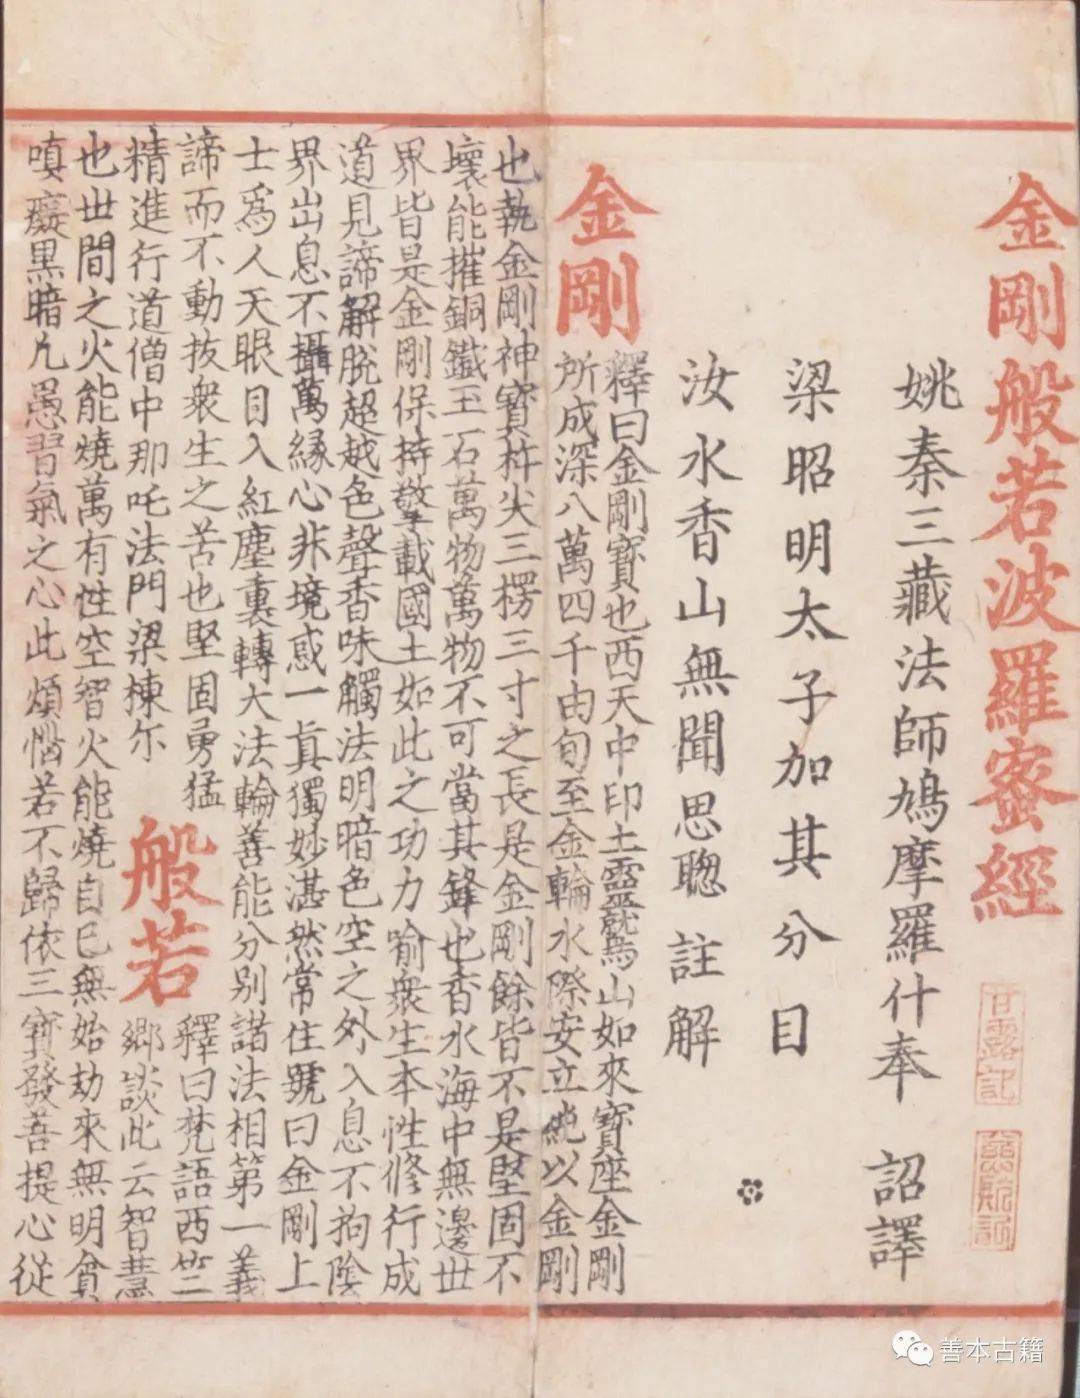 金剛般若波羅蜜經
姚秦三藏法師鳩摩羅什奉 詔譯
梁昭明太子加其分目
汝水香山無聞思聰 註解
金剛
釋曰金剛寶也西天中印土靈鷲山如來寶座金剛
所成深八萬四千由旬至金輪水際安立純以金剛
也執金剛神寶杵尖三楞三寸之長是金剛餘皆不是堅固不
壞能摧銅鐵玉石萬物萬物不可當其鋒也香水海中無邊世
界皆是金剛保持擎載國土如此之功力喻衆生本性修行成
道見諦解脫超越色聲香味觸法明暗色空之外入息不拘陰
界出息不攝萬緣心非境惑一真獨妙湛然常住號曰金剛上
士爲人天眼目入紅塵裏轉大法輪善能分別諸法相第一義
諦而不動抜衆生之苦也堅固勇猛
精進行道僧中那吒法門梁棟尓
般若
釋曰梵語西竺
鄉談此云智慧
也世間之火能燒萬有性空智火能燒自己無始劫來無明貪
嗔癡黒暗九愚習氣之心此煩惱若不歸依三寶發菩提心從
甘露記
善本古籍